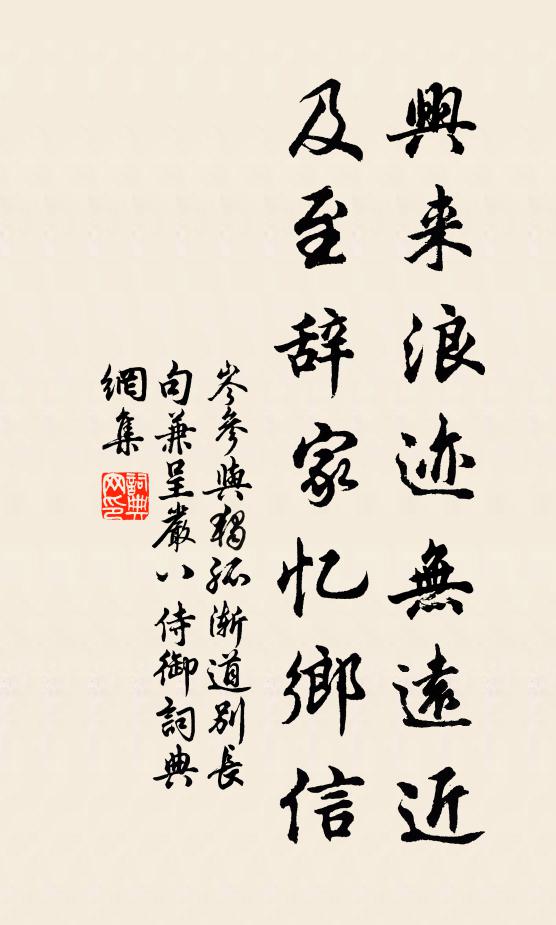 興来浪迹無遠近
及至辞家忆鄉信
岑參與獨孤漸道別長
句兼呈嚴八侍御詞典
網集
詞典
网印